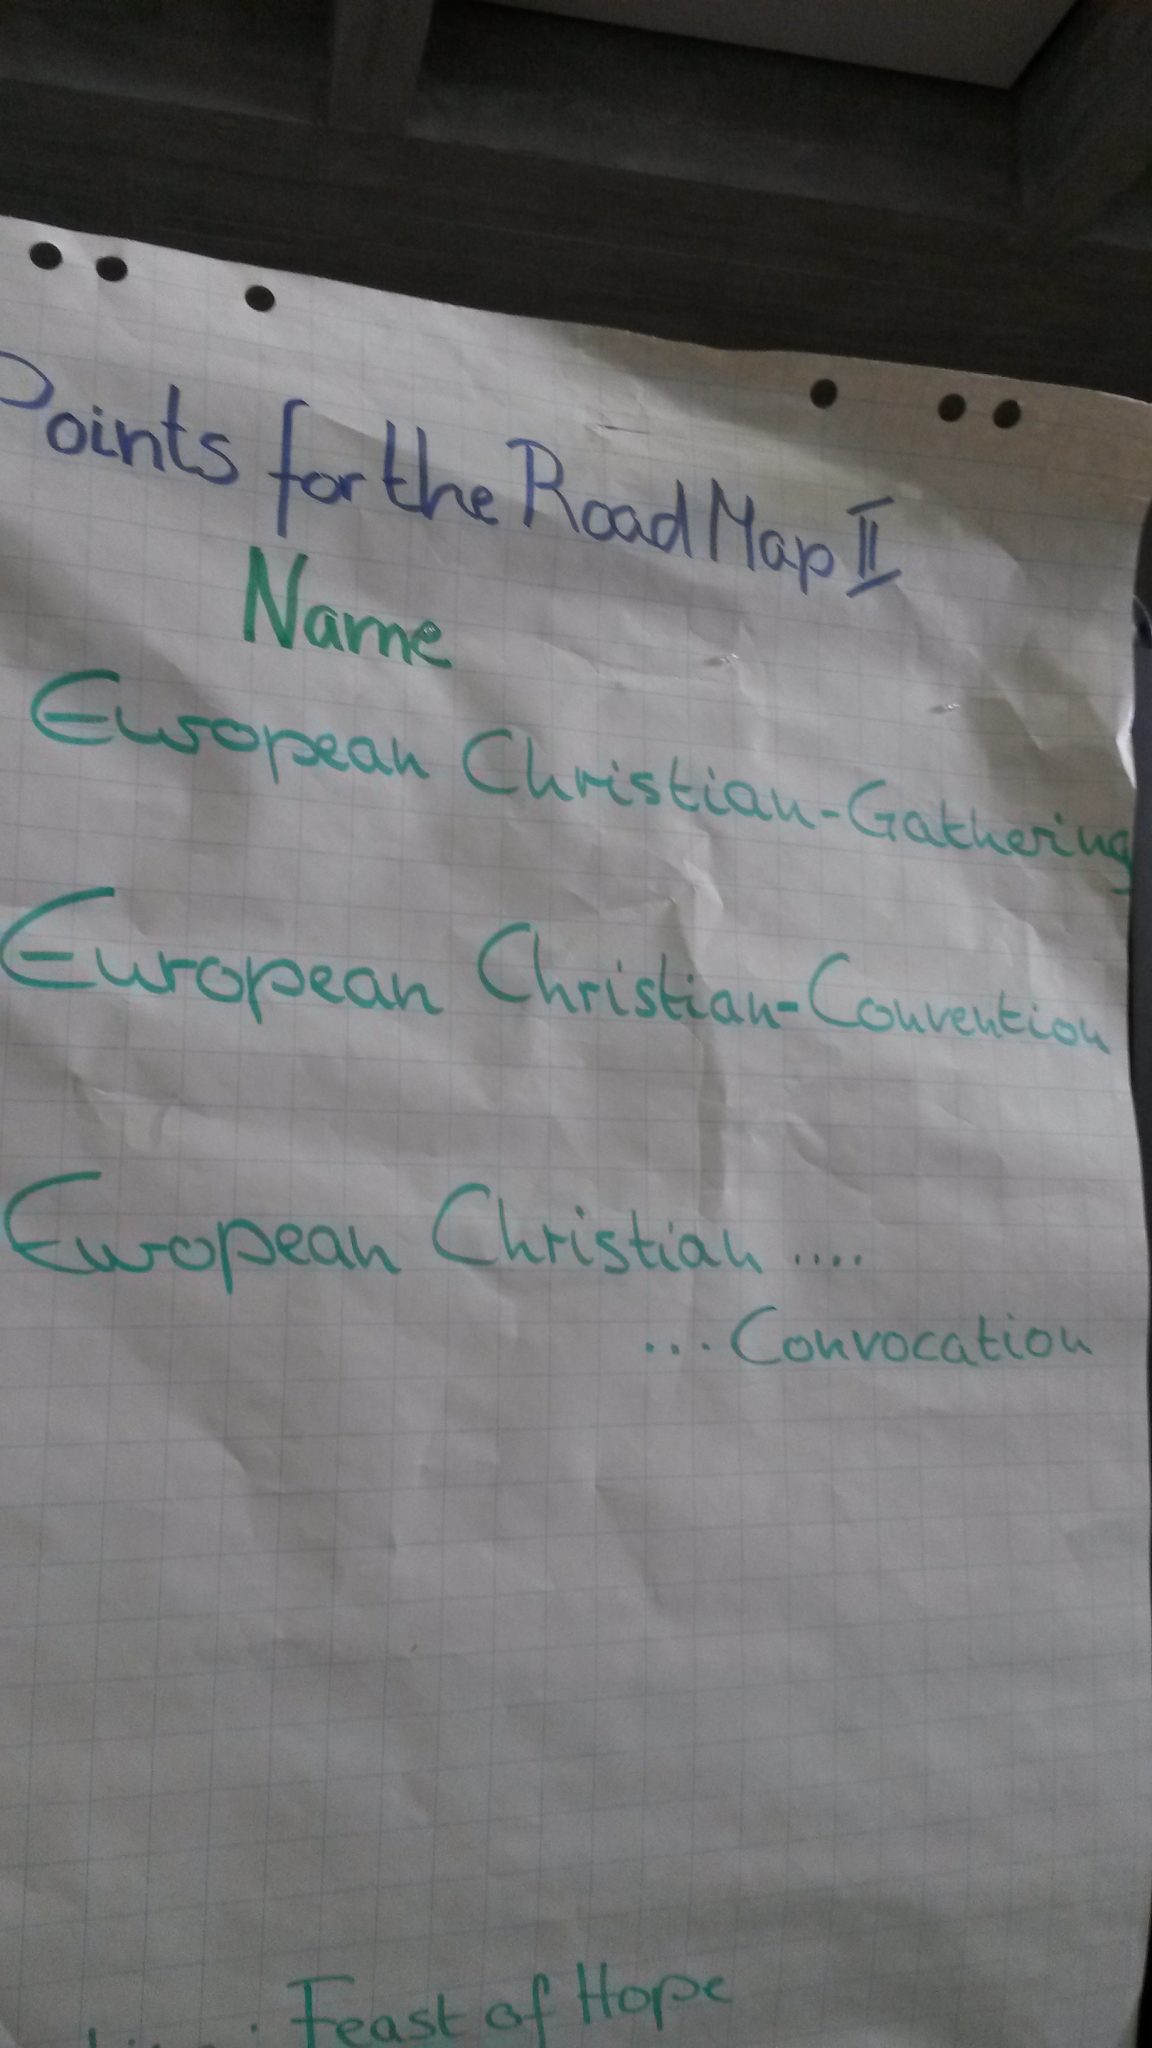 Points for the Road Map II
Name
European Christian-Gathering
European Christian-Convention
European Christian ....
... Convocation
Feast of Hope